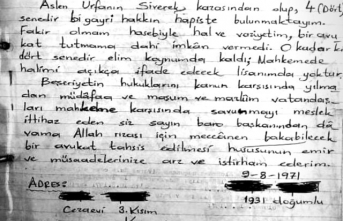 Aslen Urfanın Siverek kazasından olup, 4 (Dört)
senedir bigayri hakkın hapiste bulunmaktayım.
Fakir olmam hasebiyle hal ve vaziyetim, bir avu
kat tutmama dahi imkân vermedi. O kadar ki
dört senedir elim koynumda kaldı. Mahkemede
halimi açıkça ifade edecek lisanımda yoktur.
Beşeriyetin hukuklarını kanun karşısında yılma
dan müdafaa ve masum ve mazlûm vatandaş
ları mahkeme karşısında savunmayı meslek
ittihaz eden siz sayın baro başkanından dâ
vama Allah rızası için meccânen bakabilecek
bir avukat tahsis edilmesi hususunun emir
ve müsaadelerinize arz ve istirham ederim.
9-8-1971
ADRES:
1931 doğumlu
Cezaevi 3. Kısım